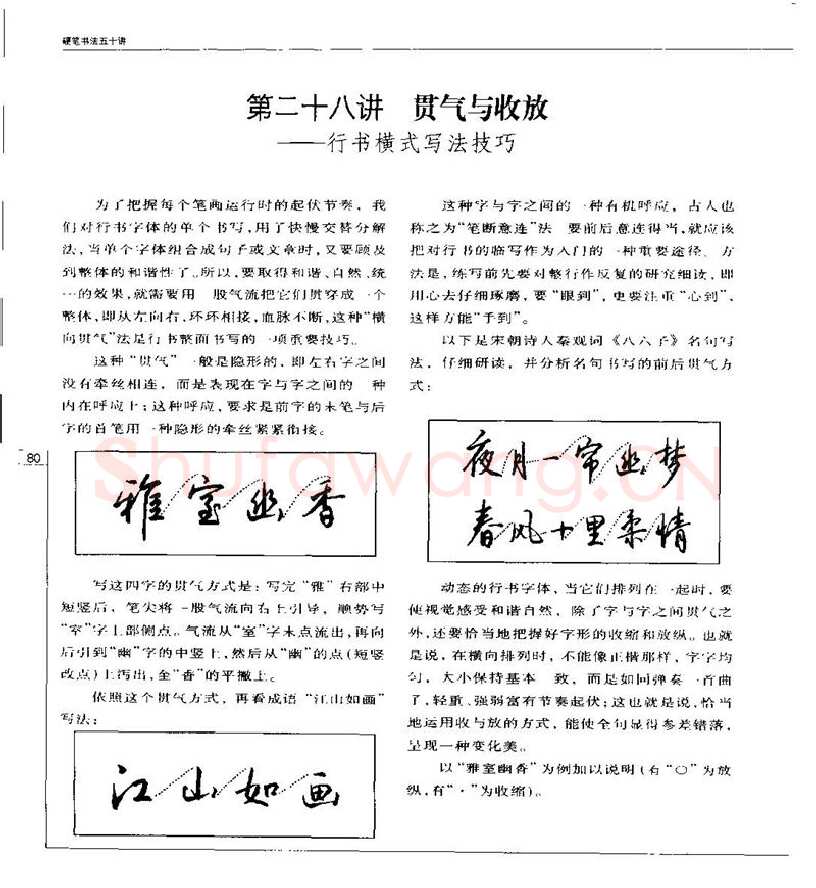 硬笔书法五十讲
第二十八讲 贯气与收放
——行书横式写法技巧
为了把握每个笔画运行时的起伏节奏。我
们对行书字体的单个书写,用了快慢交替分解
法,当单个字体组合成句子或文章时,又要顾及
到整体的和谐性了。所以,要取得和谐、自然、统
一的效果,就需要用一股气流把它们贯穿成一个
整体,即从左向右,环环相接,血脉不断,这种“横
向贯气”法是行书整面书写的一项重要技巧。
这种“贯气”一般是隐形的,即左右字之间
没有牵丝相连,而是表现在字与字之间的一种
内在呼应上;这种呼应,要求是前字的末笔与后
字的首笔用一种隐形的牵丝紧紧衔接。
80
雅室幽香
写这四字的贯气方式是:写完“雅”右部中
短竖后,笔尖将一股气流向右上引导,顺势写
“室”字上部侧点。气流从“室”字末点流出,再向
后引到“幽”字的中竖上,然后从“幽”的点(短竖
改点)上泻出,至“香”的平撇上。
依照这个贯气方式,再看成语“江山如画”
写法:
江山如画
这种字与字之间的一种有机呼应,古人也
称之为“笔断意连”法 要前后意连得当,就应该
把对行书的临写作为入门的一种重要途径。方
法是,练写前先要对整行作反复的研究细读,即
用心去仔细琢磨,要“眼到”,更要注重“心到”,
这样方能“手到”。
以下是宋朝诗人秦观词《八六子》名句写
法,仔细研读。并分析名句书写的前后贯气方
式:
夜月一帘幽梦
春风十里柔情
动态的行书字体,当它们排列在一起时,要
使视觉感受和谐自然,除了字与字之间贯气之
外,还要恰当地把握好字形的收缩和放纵。也就
是说,在横向排列时,不能像正楷那样,字字均
匀,大小保持基本一致,而是如同弹奏一首曲
子,轻重、强弱富有节奏起伏;这也就是说,恰当
地运用收与放的方式,能使全句显得参差错落,
呈现一种变化美。
以“雅室幽香”为例加以说明(有“○”为放
纵,有“·”为收缩)。
Shufawang.CN